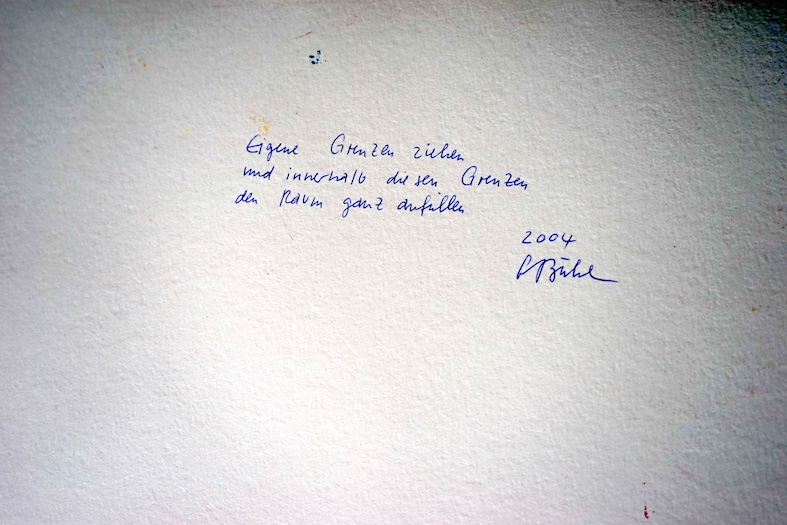 Eigene Grenzen ziehen
und innerhalb diesen Grenzen
den Raum ganz anfüllen
2004